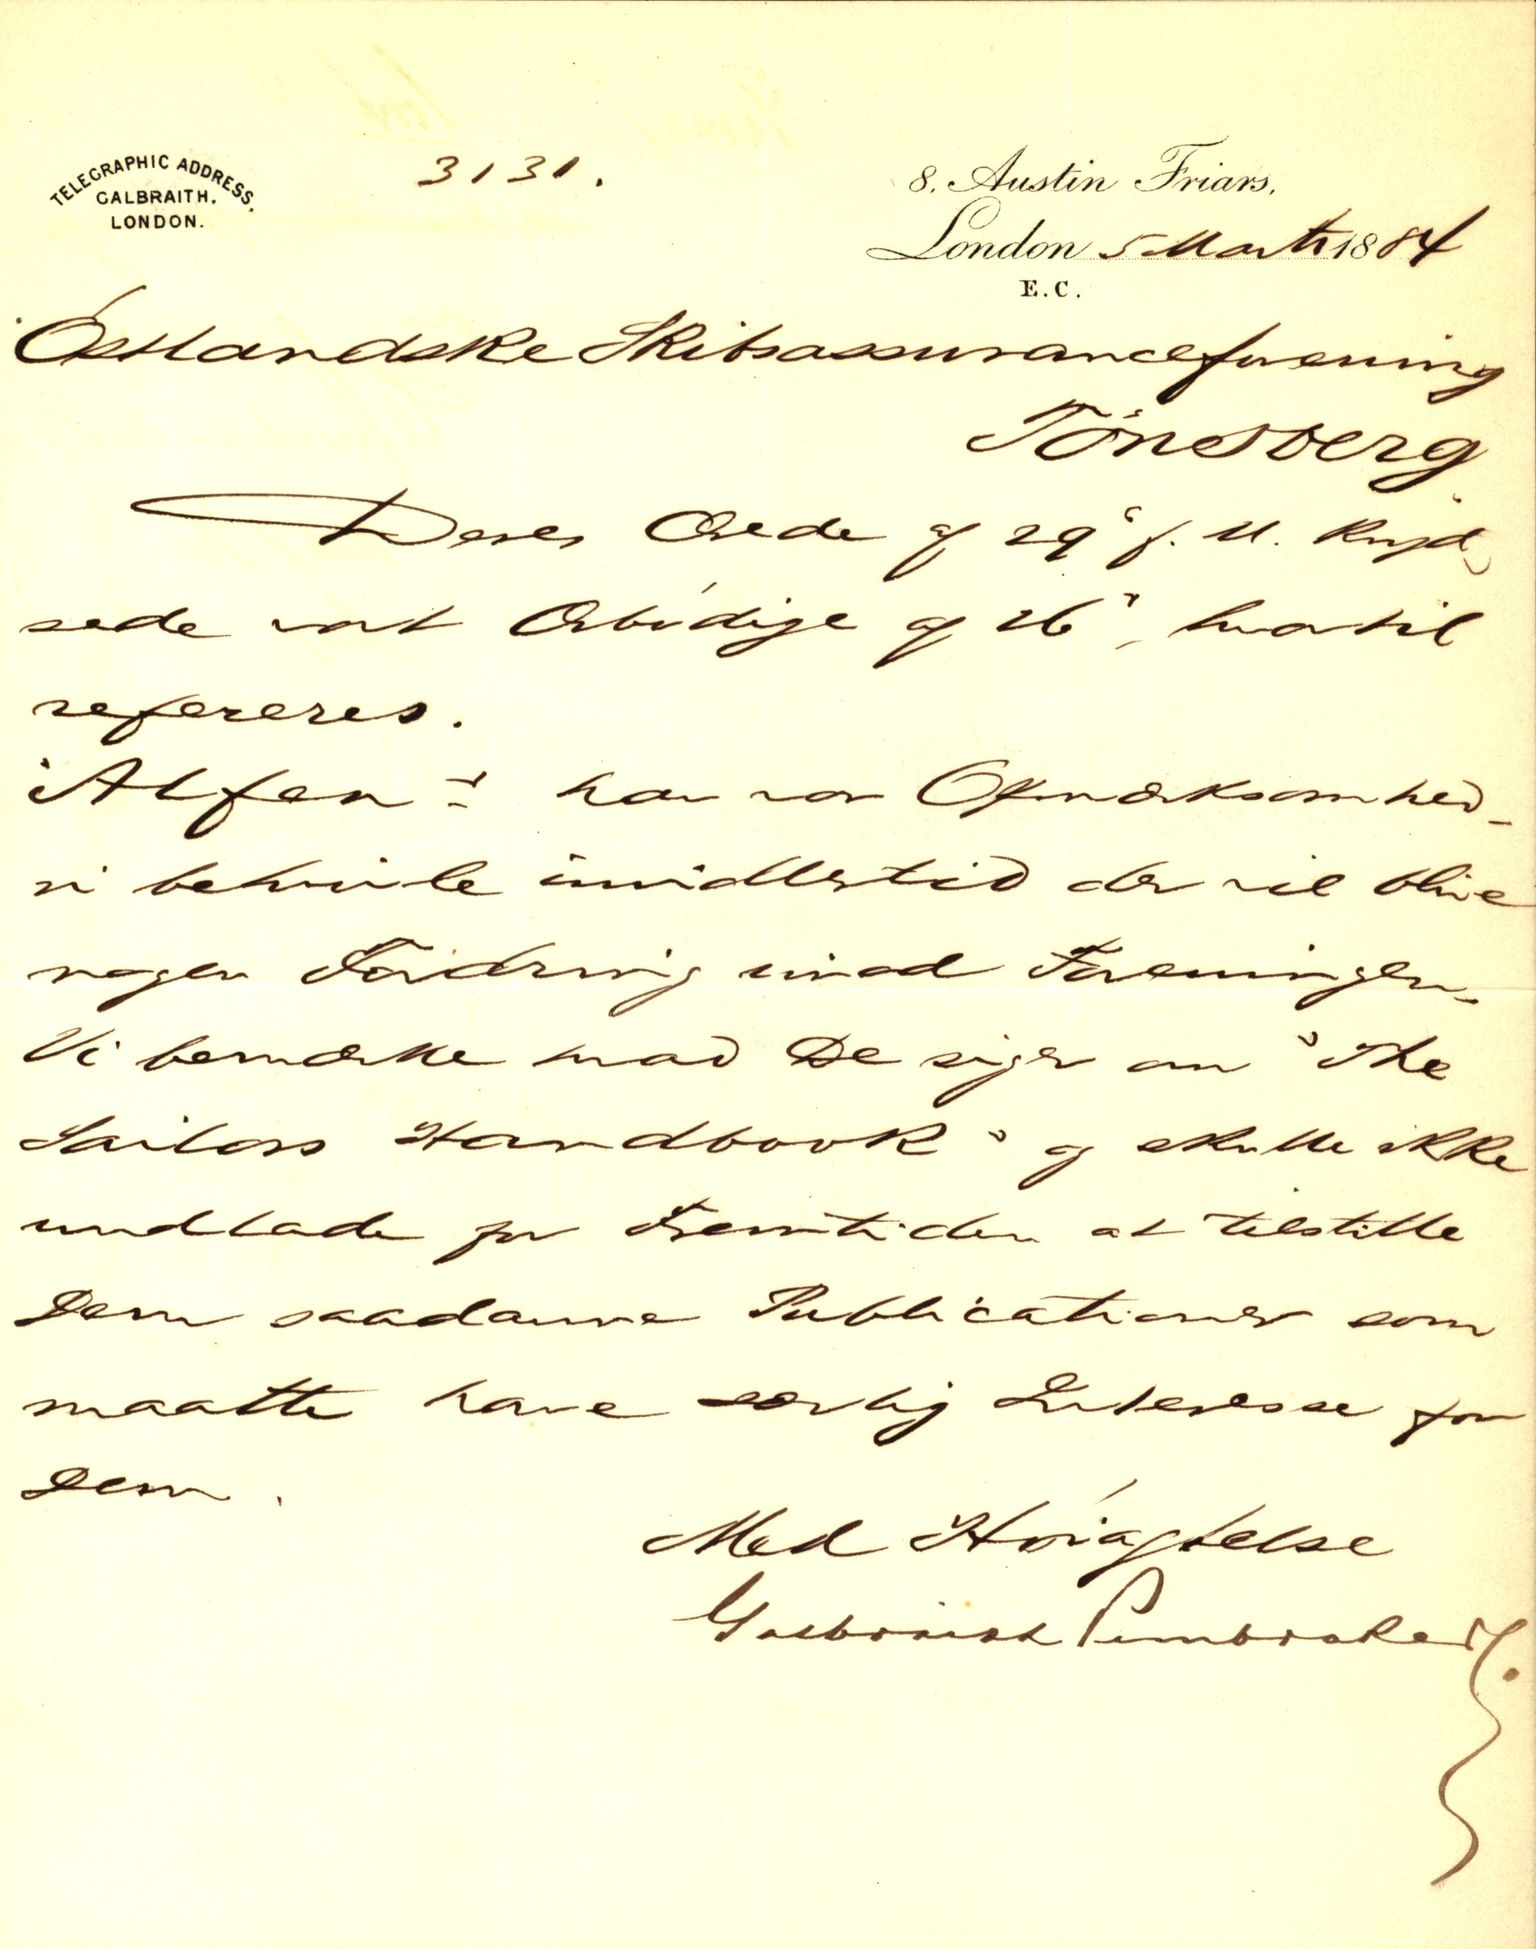 TELEGRAPHIC ADDRESS,
GALBRAITH,
LONDON.
3131.
8. Austin Friars,
London 5 Marts 1884
E.C.
Östlandske Skibsassuranceforening
Tönsberg
Deres Ærede af 29' f. M. krydsede
vort Ærbödige af 26", hvortil
refereres.
"Alfen" har vor Opmærksomhed -
vi betvivle imidlertid der vil blive
nogen Fordring imod Foreningen.
Vi bemærke hvad De siger om "The
Sailors Handbook" og skulle ikke
undlade for Fremtiden at tilstille
Dem saadanne Publicationer som
maatte have særlig Interesse for
Dem.
Med Höiagtelse
Galbraith Pembroke & Co.